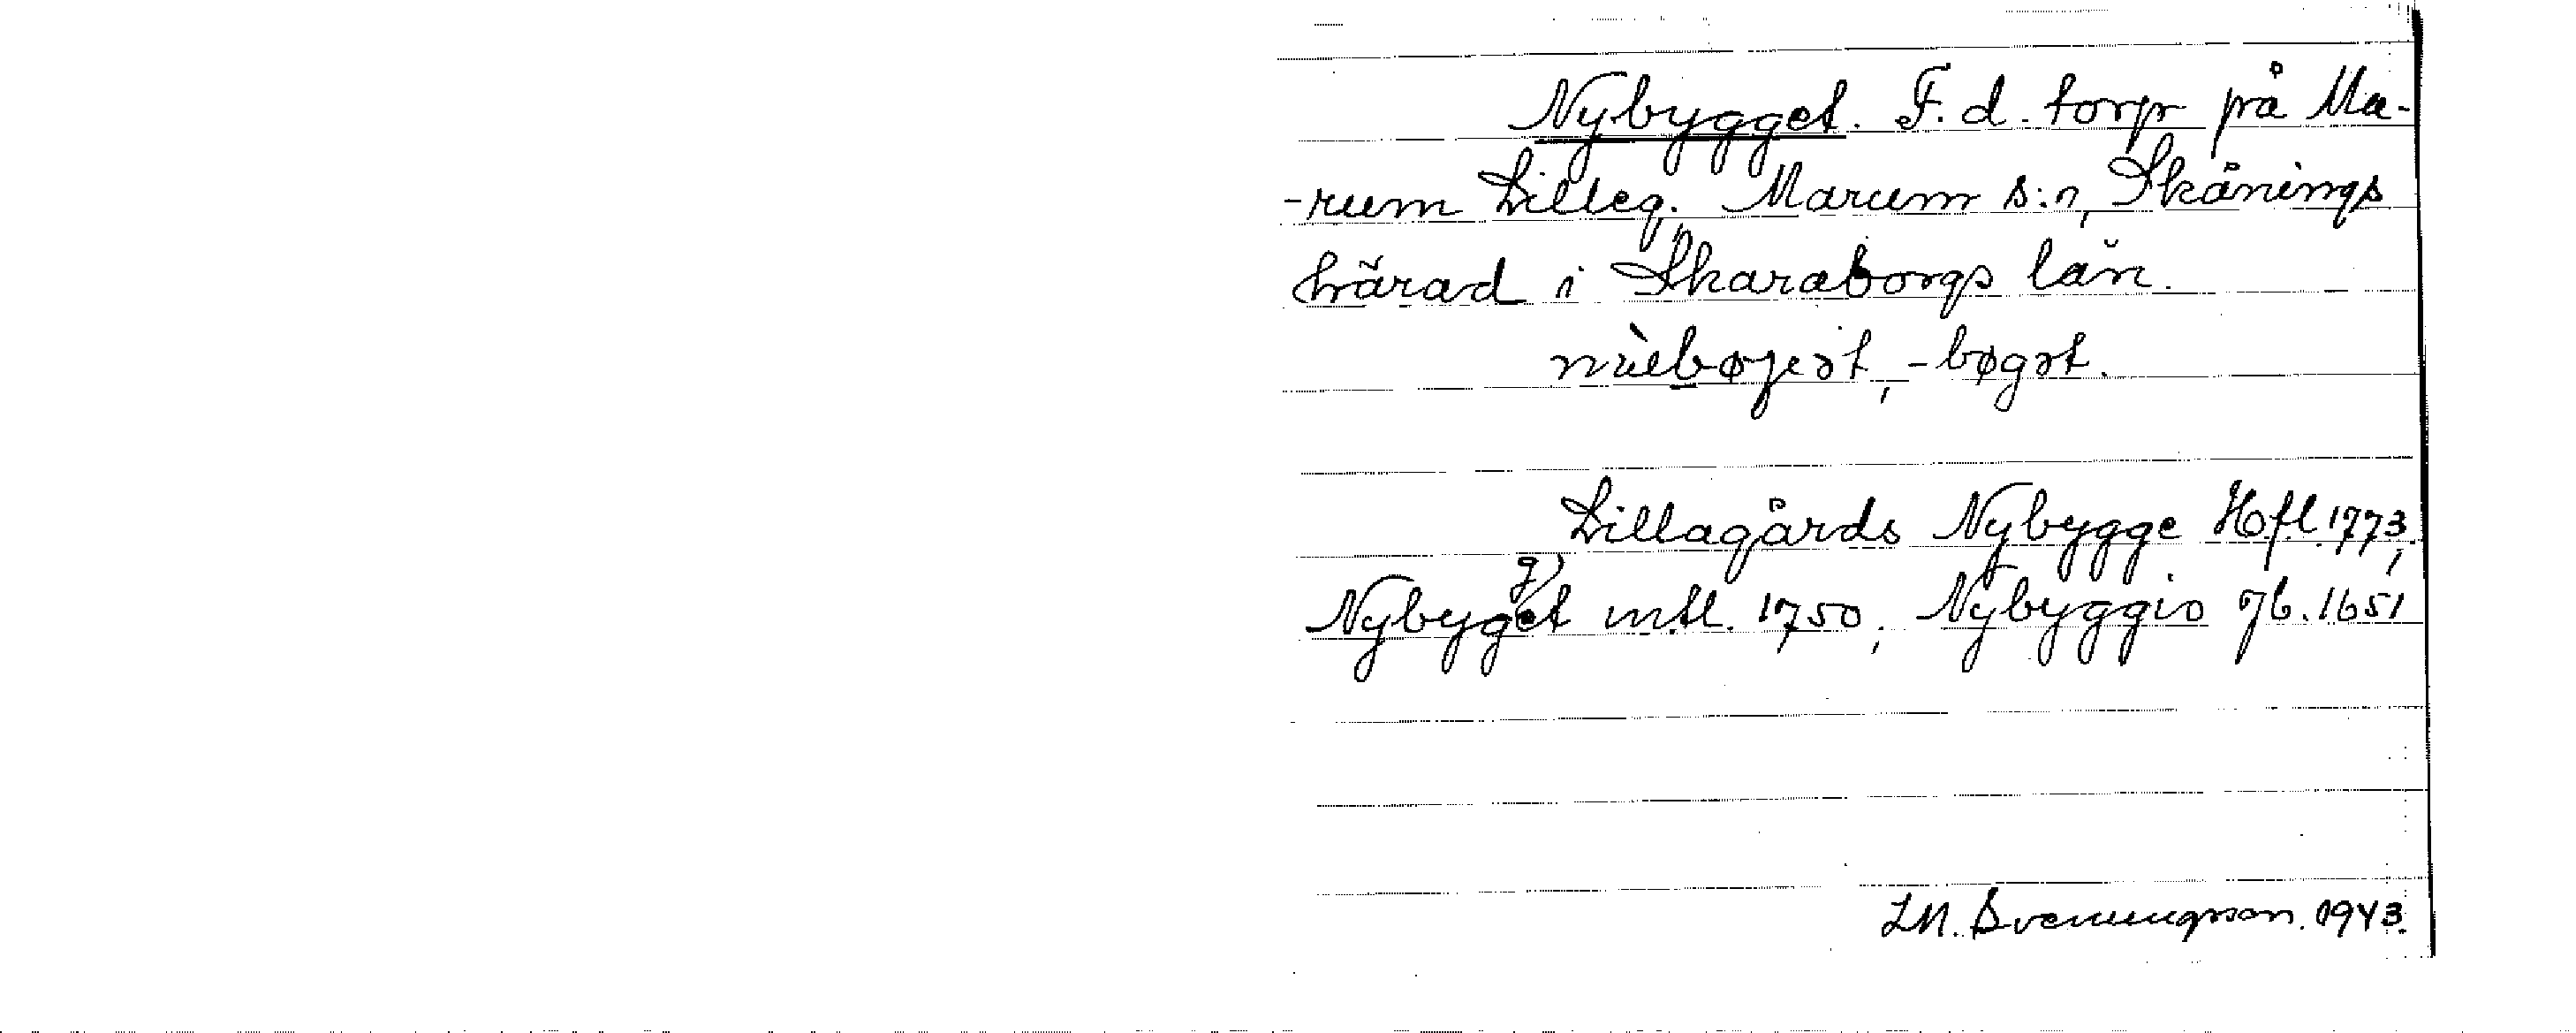 Nybygget. F. d. torp på Ma-
-rum Lilleg. Marum s:n, Skånings
härad i Skaraborgs län.
-bøgət.
Lillagårds Nybygge Hfl. 1773,
Nybygget mtl. 1750, Nybyggio Jb. 1651
LM. Svenungsson. 1943.